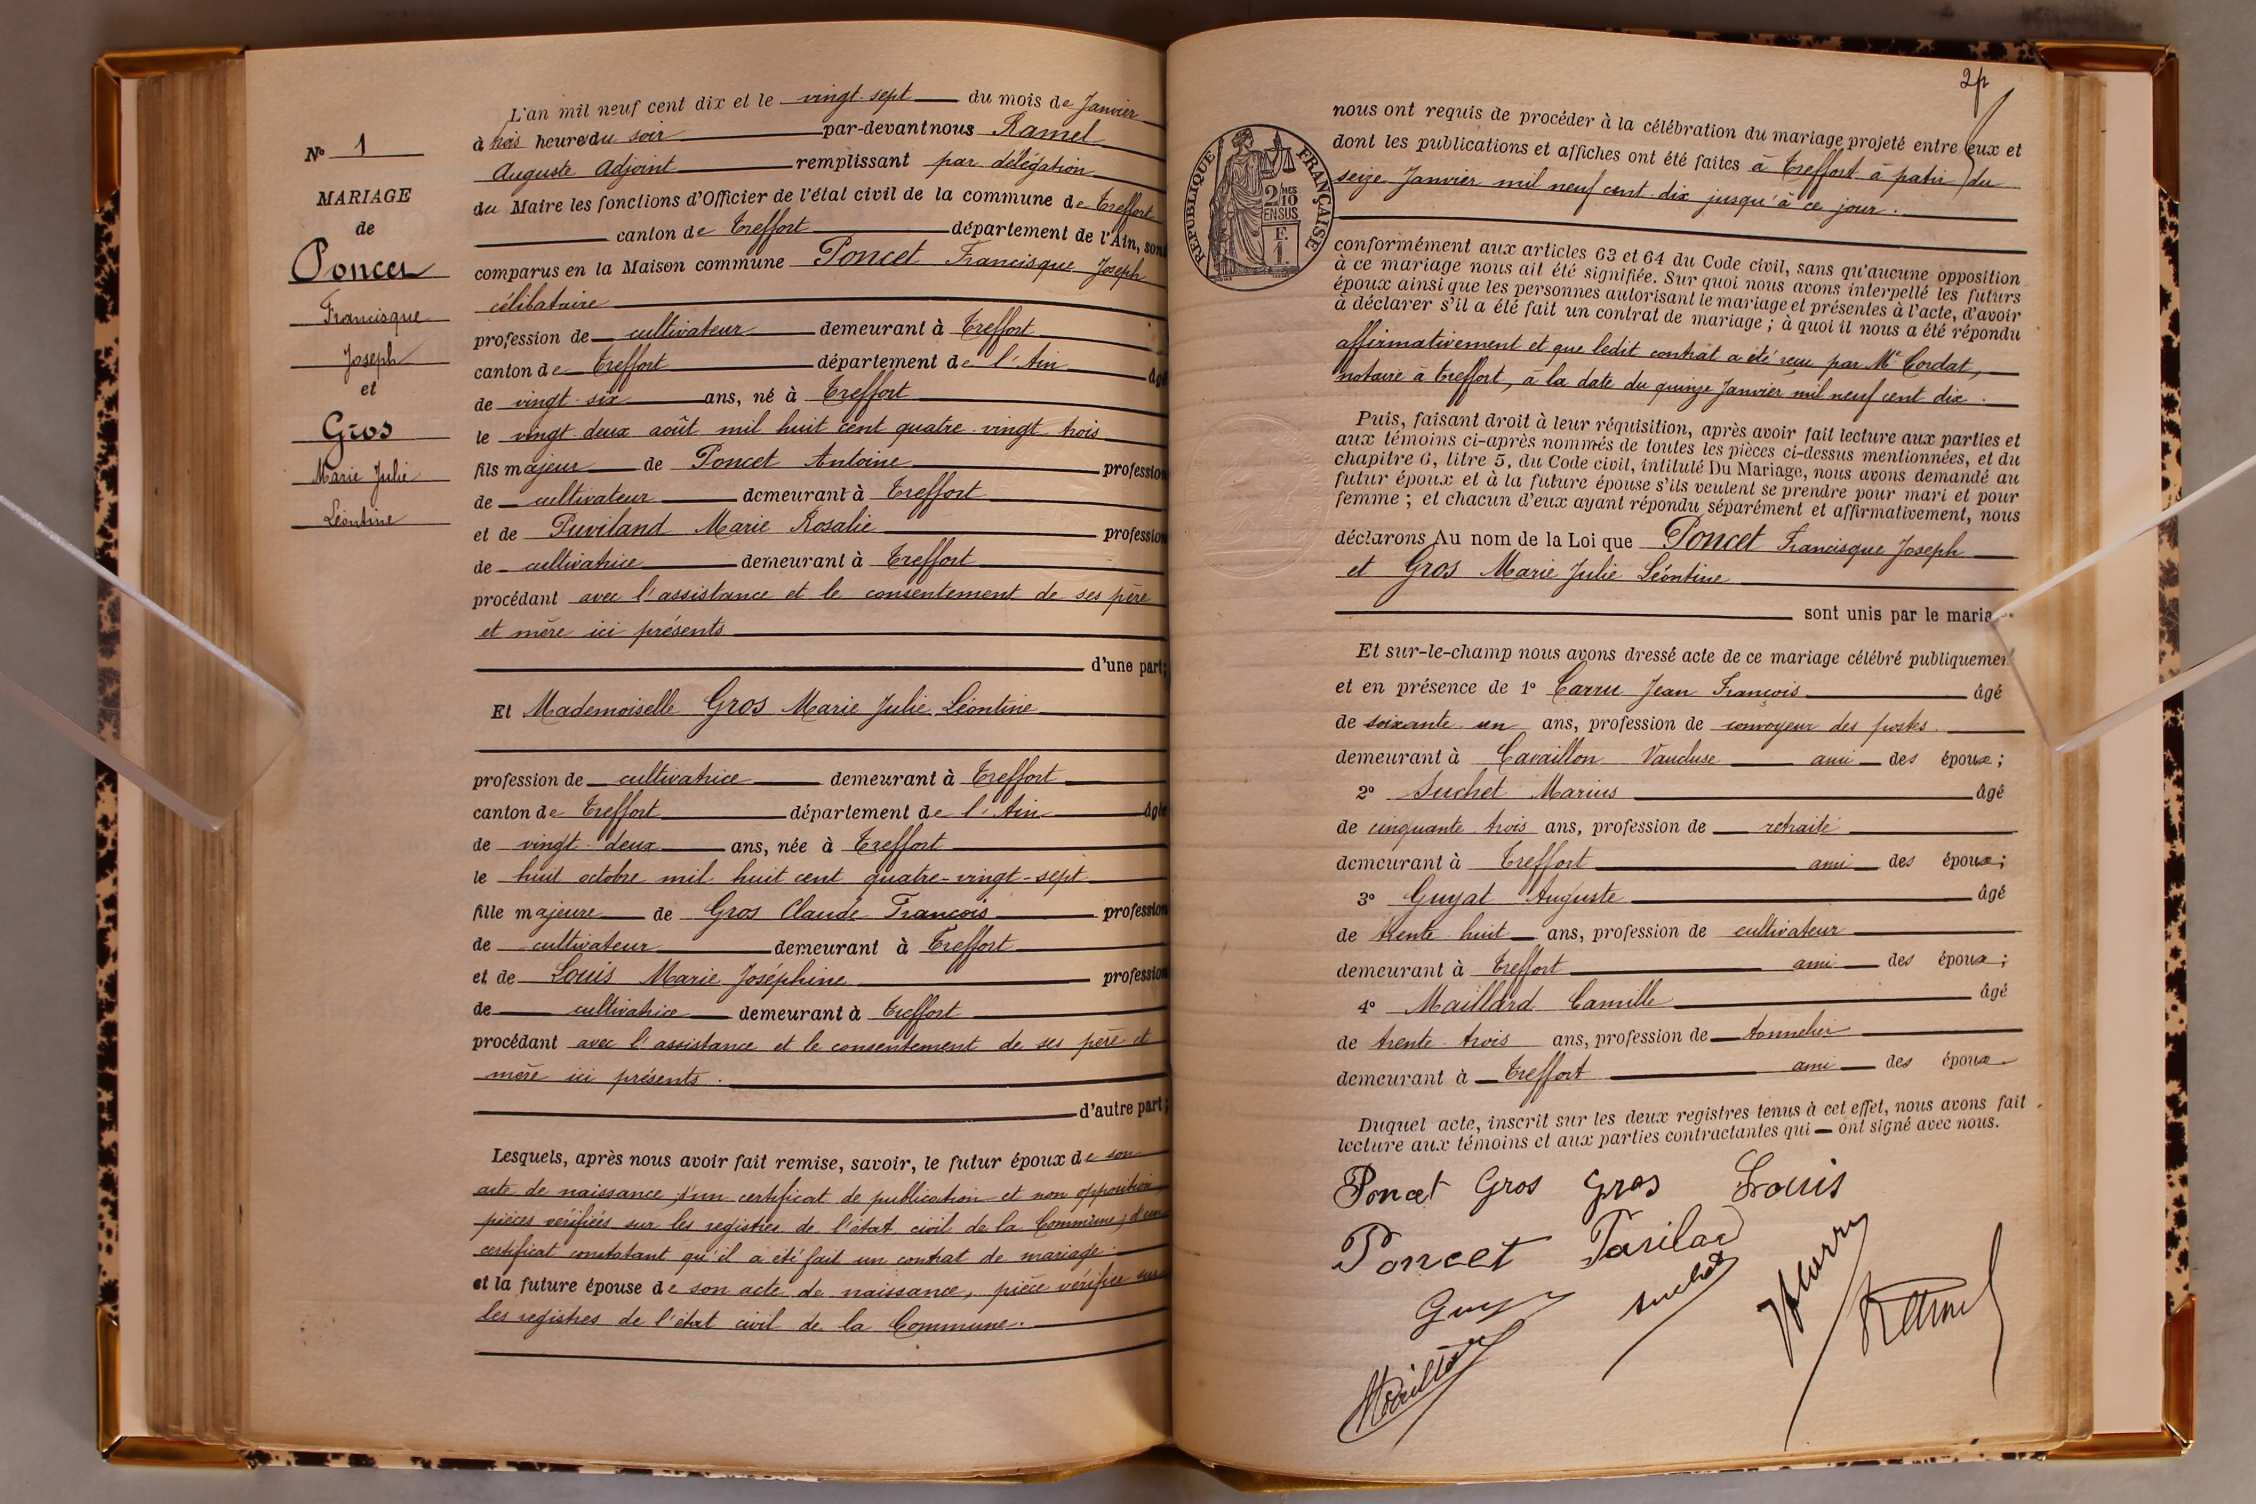 N° 1
MARIAGE
de
Poncet
Francisque
Joseph
et
Gros
Marie Julie
Léontine
L'an mil neuf cent dix et le vingt sept du mois de Janvier
à trois heure du soir par-devant nous Ramel
Auguste Adjoint remplissant par délégation
du Maire les fonctions d'Officier de l'état civil de la commune de Treffort
canton de Treffort département de l'Ain, sont
comparus en la Maison commune Poncet Francisque Joseph
célibataire
profession de cultivateur demeurant à Treffort
canton de Treffort département de l'Ain âgé
de vingt-six ans, né à Treffort
le vingt-deux août mil huit cent quatre-vingt trois
fils majeur de Poncet Antoine profession
de cultivateur demeurant à Treffort
et de Puviland Marie Rosalie profession
de cultivatrice demeurant à Treffort
procédant avec l'assistance et le consentement de ses père
et mère ici présents
d'une part;
Et Mademoiselle Gros Marie Julie Léontine
profession de cultivatrice demeurant à Treffort
canton de Treffort département de l'Ain âgée
de vingt-deux ans, née à Treffort
le huit octobre mil huit cent quatre-vingt-sept
fille majeure de Gros Claude François profession
de cultivateur demeurant à Treffort
et de Louis Marie Joséphine profession
de cultivatrice demeurant à Treffort
procédant avec l'assistance et le consentement de ses père et
mère ici présents.
d'autre part;
Lesquels, après nous avoir fait remise, savoir, le futur époux de son
acte de naissance, d'un certificat de publication et non opposition,
pièces vérifiées sur les registres de l'état civil de la Commune, d'un
certificat constatant qu'il a été fait un contrat de mariage.
et la future épouse de son acte de naissance, pièce vérifiée sur
les registres de l'état civil de la Commune.
2
RÉPUBLIQUE FRANÇAISE
2/10
EN SUS
E.
1
nous ont requis de procéder à la célébration du mariage projeté entre eux et
dont les publications et affiches ont été faites à Treffort à partir du
seize Janvier mil neuf cent dix jusqu'à ce jour.
conformément aux articles 63 et 64 du Code civil, sans qu'aucune opposition
à ce mariage nous ait été signifiée. Sur quoi nous avons interpellé les futurs
époux ainsi que les personnes autorisant le mariage et présentes à l'acte, d'avoir
à déclarer s'il a été fait un contrat de mariage ; à quoi il nous a été répondu
affirmativement et que ledit contrat a été reçu par Me Cordat,
notaire à Treffort, à la date du quinze Janvier mil neuf cent dix.
Puis, faisant droit à leur réquisition, après avoir fait lecture aux parties et
aux témoins ci-après nommés de toutes les pièces ci-dessus mentionnées, et du
chapitre 6, titre 5, du Code civil, intitulé Du Mariage, nous avons demandé au
futur époux et à la future épouse s'ils veulent se prendre pour mari et pour
femme ; et chacun d'eux ayant répondu séparément et affirmativement, nous
déclarons Au nom de la Loi que Poncet Francisque Joseph
et Gros Marie Julie Léontine
sont unis par le maria
Et sur-le-champ nous avons dressé acte de ce mariage célébré publiquement
et en présence de 1° Carru Jean François âgé
de soixante-un ans, profession de convoyeur des postes
demeurant à Cavaillon Vaucluse ami des époux;
2° Suchet Marius âgé
de cinquante-trois ans, profession de retraité
demeurant à Treffort ami des époux;
3° Guyat Auguste âgé
de trente-huit ans, profession de cultivateur
demeurant à Treffort ami des époux;
4° Maillard Camille âgé
de trente-trois ans, profession de tonnelier
demeurant à Treffort ami des époux
Duquel acte, inscrit sur les deux registres tenus à cet effet, nous avons fait
lecture aux témoins et aux parties contractantes qui ont signé avec nous.
Poncet Gros Gros Louis
Poncet
Suchet
Maillard
Ramel